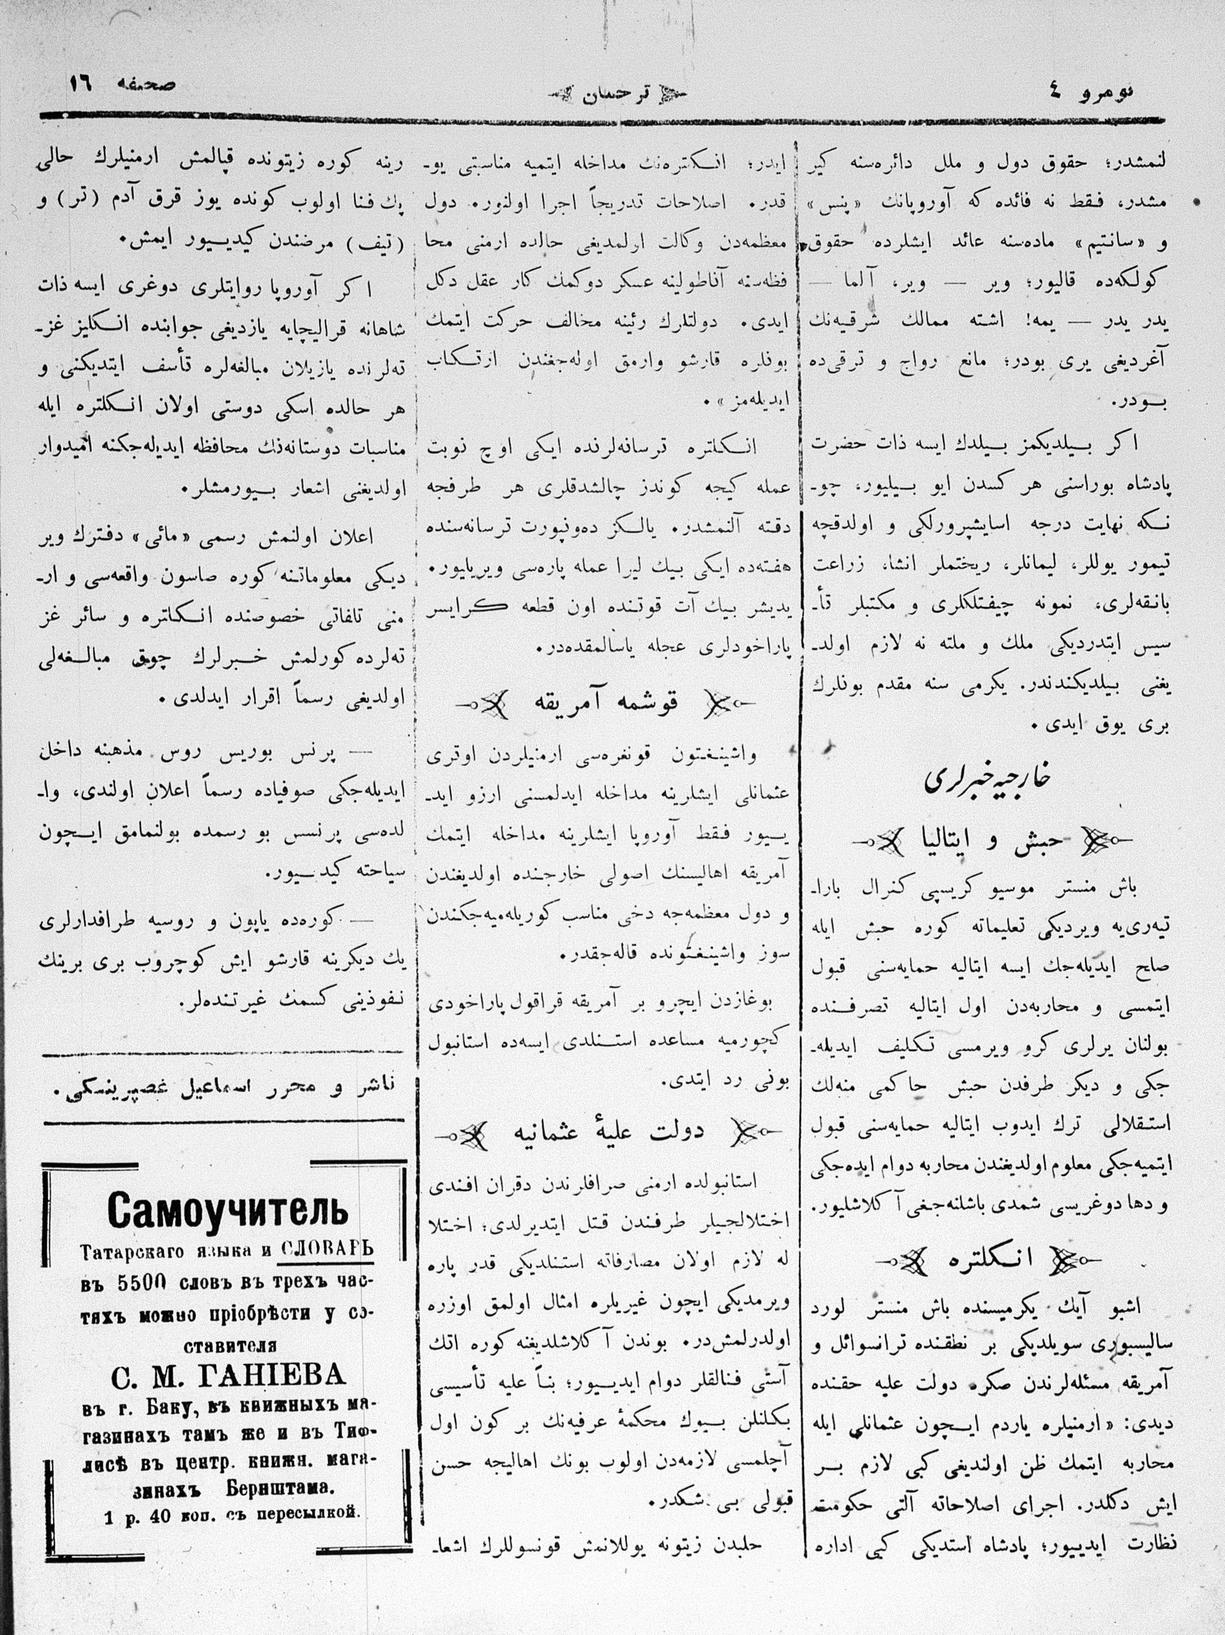 نومرو ٤
ترجمان
صحیفه ١٦
لنمشدر؛ حقوق دول و ملل دائره‌سنه كیر
مشدر، فقط نه فائده كه آوروپانك «پنس»
و «سانتیم» ماده‌سنه عائد ایشلرده حقوق
كولكه‌ده قالیور؛ ویر — ویر، آلما —
یدر یدر — یمه! اشته ممالك شرقیه‌نك
آغردیغی یری بودر؛ مانع رواج و ترقی‌ده
بودر.
اكر بیلدیكمز بیلدك ایسه ذات حضرت
پادشاه بوراسنی هر كسدن ایو بیلیور، چو-
نكه نهایت درجه اسایشپرورلكی و اولدقچه
تیمور یوللر، لیمانلر، ریختملر انشا، زراعت
بانقه‌لری، نمونه چیفتلكلری و مكتبلر تأ-
سیس ایتدردیكی ملك و ملته نه لازم اولد-
یغنی بیلدیكندندر. یكرمی سنه مقدم بونلرك
بری یوق ایدی.
خارجیه خبرلری
حبش و ایتالیا
باش منستر موسیو كریسپی كنرال بارا-
تیه‌ری‌یه ویردیكی تعلیماته كوره حبش ایله
صلح ایدیله‌جك ایسه ایتالیه حمایه‌سنی قبول
ایتمسی و محاربه‌دن اول ایتالیه تصرفنده
بولنان یرلری كرو ویرمسی تكلیف ایدیله-
جكی و دیكر طرفدن حبش حاكمی منه‌لك
استقلالی ترك ایدوب ایتالیه حمایه‌سنی قبول
ایتمیه‌جكی معلوم اولدیغندن محاربه دوام ایده‌جكی
و دها دوغریسی شمدی باشلنه‌جغی آكلاشلیور.
انكلتره
اشبو آیك یكرمیسنده باش منستر لورد
سالیسبوری سویلدیكی بر نطقنده ترانسوائل و
آمریقه مسئله‌لرندن صكره دولت علیه حقنده
دیدی: «ارمنیلره یاردم ایچون عثمانلی ایله
محاربه ایتمك ظن اولندیغی كبی لازم بر
ایش دكلدر. اجرای اصلاحاته آلتی حكومت
نظارت ایدییور؛ پادشاه استدیكی كبی اداره
ایدر؛ انكلتره‌نك مداخله ایتمیه مناسبتی یو-
قدر. اصلاحات تدریجاً اجرا اولنور. دول
معظمه‌دن وكالت ارلمدیغی حالده ارمنی محا
فظه‌سنه آناطولینه عسكر دوكمك كار عقل دكل
ایدی. دولتلرك رئینه مخالف حركت ایتمك
بونلره قارشو وارمق اوله‌جغندن ارتكاب
ایدیله‌مز».
انكلتره ترسانه‌لرنده ایكی اوچ نوبت
عمله كیجه كوندز چالشدقلری هر طرفجه
دقته آلنمشدر. یالكز ده‌ونپورت ترسانه‌سنده
هفته‌ده ایكی بیك لیرا عمله پاره‌سی ویریلیور.
یدیشر بیك آت قوتنده اون قطعه كرایسر
پاراخودلری عجله یاسالمقده‌در.
قوشمه آمریقه
واشینغتون قونغره‌سی ارمنیلردن اوتری
عثمانلی ایشلرینه مداخله ایدلمسنی ارزو اید-
ییور فقط آوروپا ایشلرینه مداخله ایتمك
آمریقه اهالیسنك اصولی خارجنده اولدیغندن
و دول معظمه‌جه دخی مناسب كوریله‌میه‌جكندن
سوز واشینغتونده قاله‌جقدر.
بوغازدن ایچرو بر آمریقه قراقول پاراخودی
كچورمیه مساعده استنلدی ایسه‌ده استانبول
بونی رد ایتدی.
دولت علیهٔ عثمانیه
استانبولده ارمنی صرافلرندن دقران افندی
اختلالجیلر طرفندن قتل ایتدیرلدی؛ اختلا
له لازم اولان مصارفاته استنلدیكی قدر پاره
ویرمدیكی ایچون غیریلره امثال اولمق اوزره
اولدرلمش‌در. بوندن آكلاشلدیغنه كوره اتك
آستی فنالقلر دوام ایدییور؛ بنأً علیه تأسیسی
بكلنلن بیوك محكمهٔ عرفیه‌نك بر كون اول
آچلمسی لازمه‌دن اولوب بونك اهالیجه حسن
قبولی بی شكدر.
حلبدن زیتونه یوللانمش قونسوللرك اشعا-
رینه كوره زیتونده قپالمش ارمنیلرك حالی
پك فنا اولوب كونده یوز قرق آدم (تر) و
(تیف) مرضندن كیدییور ایمش.
اكر آوروپا روایتلری دوغری ایسه ذات
شاهانه قرالیچایه یازدیغی جوابنده انكلیز غز-
ته‌لرنده یازیلان مبالغه‌لره تأسف ایتدیكنی و
هر حالده اسكی دوستی اولان انكلتره ایله
مناسبات دوستانه‌نك محافظه ایدیله‌جكنه امیدوار
اولدیغنی اشعار بیورمشلر.
اعلان اولنمش رسمی «مائی» دفترك ویر
دیكی معلوماتنه كوره صاسون واقعه‌سی و ار-
منی تلفاتی خصوصنده انكلتره و سائر غز
ته‌لرده كورلمش خبرلرك چوق مبالغه‌لی
اولدیغی رسماً اقرار ایدلدی.
— پرنس بوریس روس مذهبنه داخل
ایدیله‌جكی صوفیاده رسماً اعلان اولندی، وا-
لده‌سی پرنسس بو رسمده بولنمامق ایچون
سیاحته كیدییور.
— كوره‌ده یاپون و روسیه طرافدارلری
یك دیكرینه قارشو ایش كوچروب بری برینك
نفوذینی كسمك غیرتنده‌لر.
ناشر و محرر اسماعیل غصپرینسكی.
Самоучитель
Татарскаго языка и СЛОВАРЬ
въ 5500 словъ въ трехъ час-
тяхъ можно пріобрѣсти у со-
ставителя
С. М. ГАНІЕВА
въ г. Баку, въ книжныхъ ма-
газинахъ тамъ же и въ Тиф-
лисѣ въ центр. книжн. мага-
зинахъ Бернштама.
1 р. 40 коп. съ пересылкой.